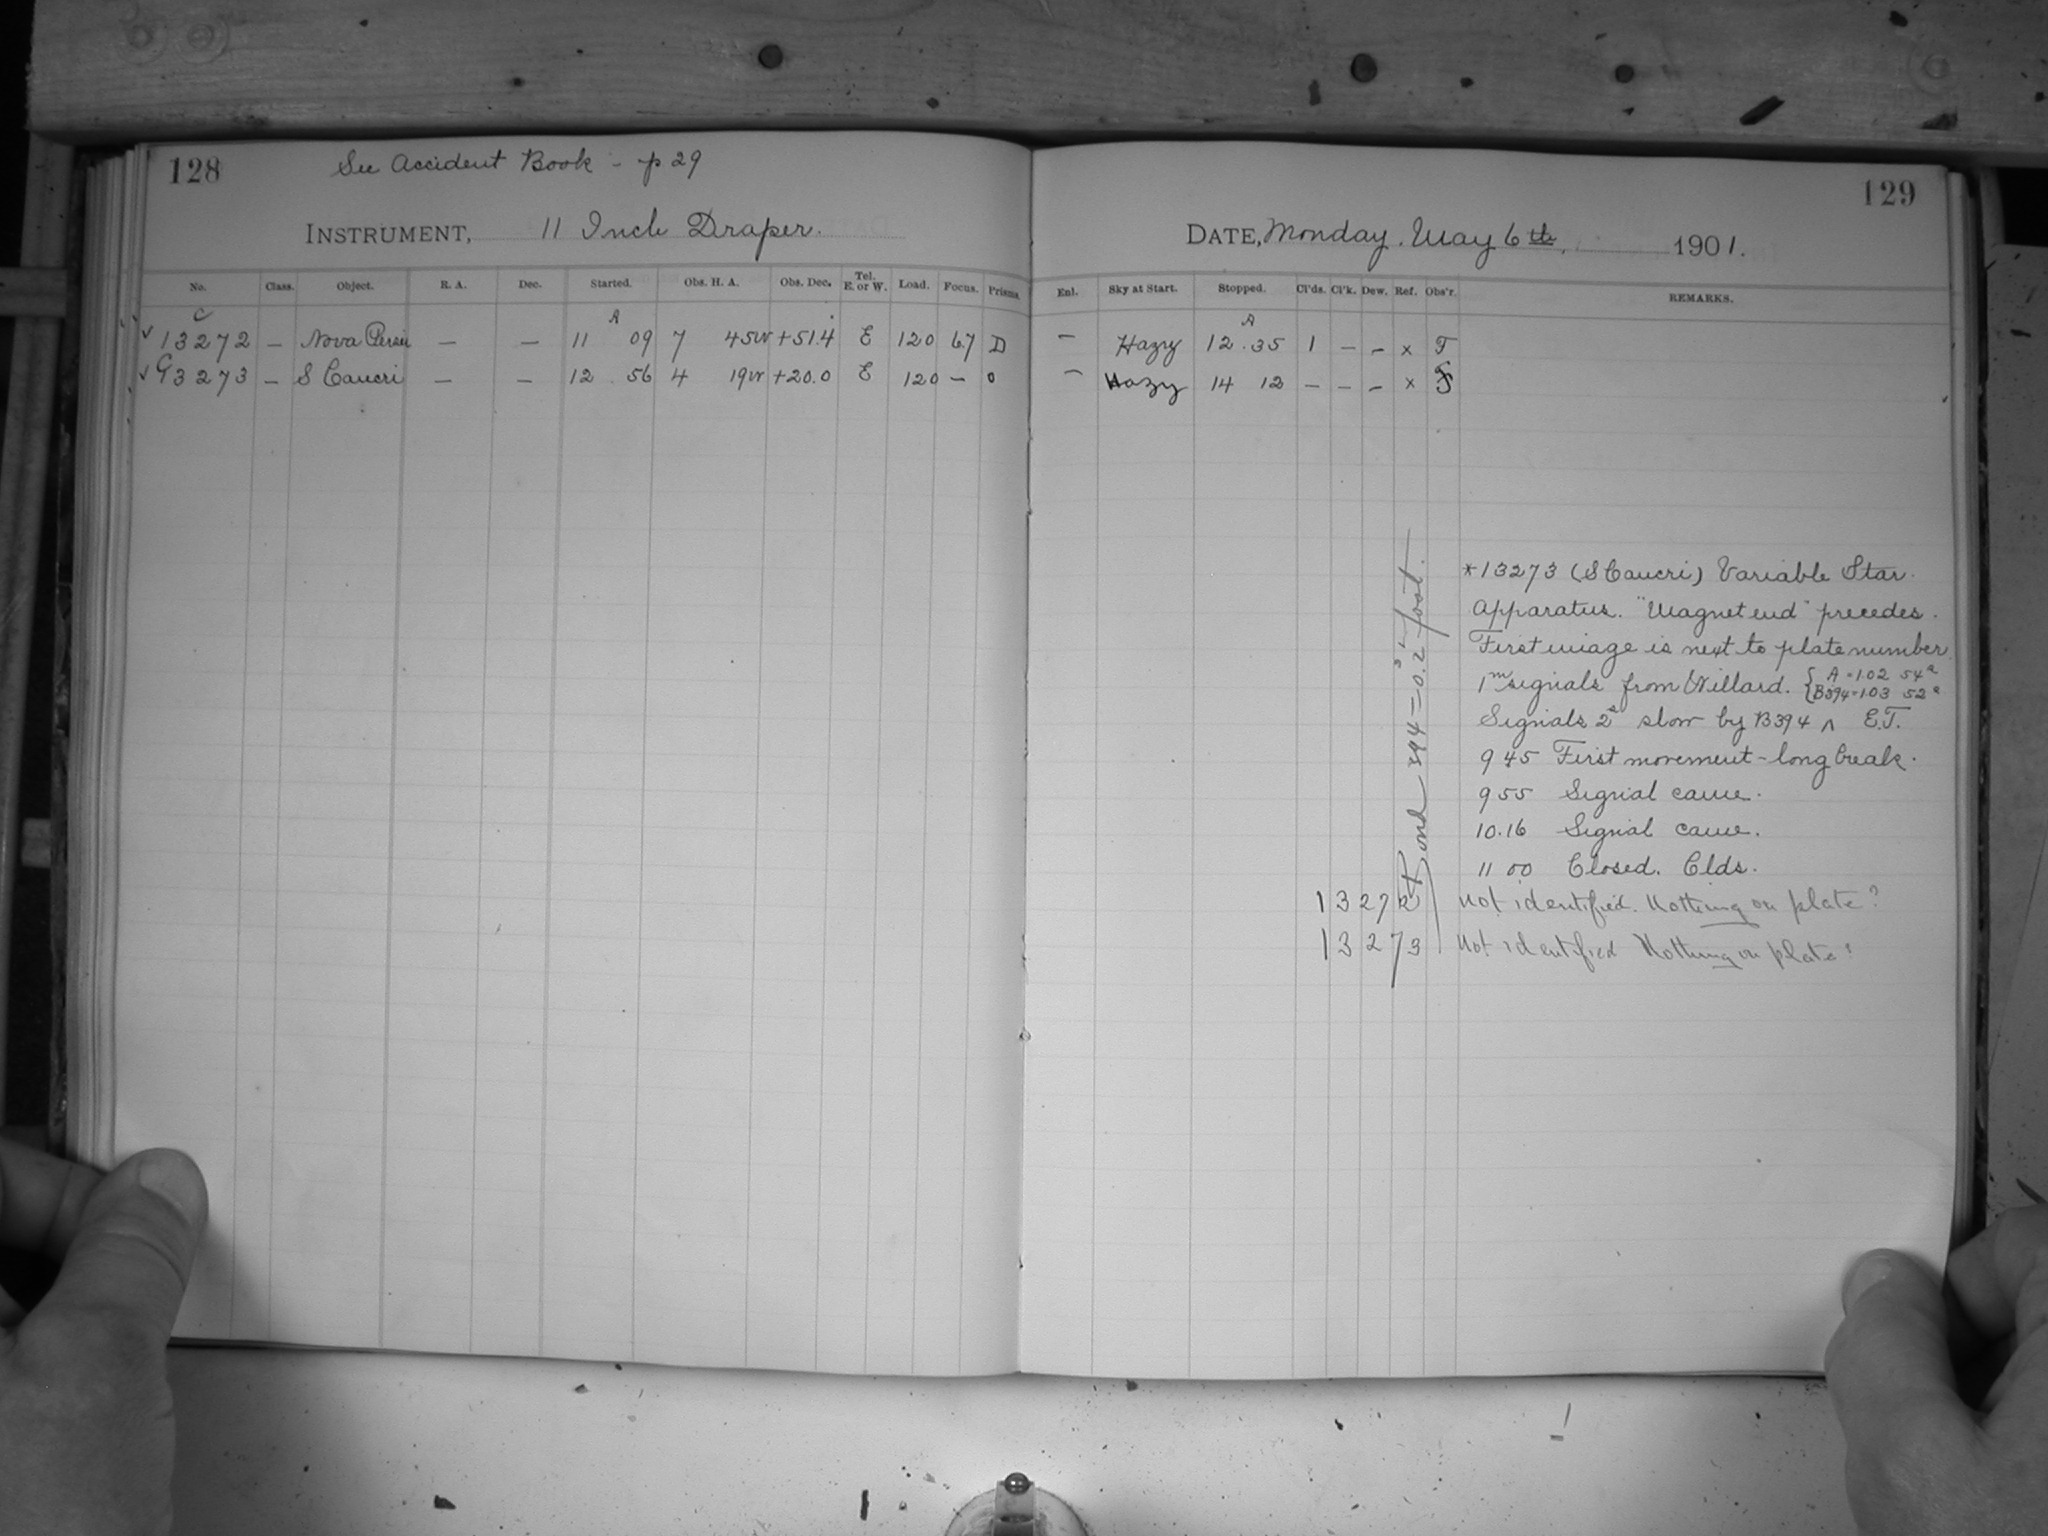 128 See Accident Book - p 29
INSTRUMENT, 11 Inch Draper.
No. Class. Object. R. A. Dec. Started. Obs. H. A. Obs. Dec. Tel. E. or W. Load. Focus. Prisms.
C A
✓ 13272 — Nova Persei — — 11 09 7 45W +51.4 E 120 67 D
✓ C 13273 — S Cancri — — 12 56 4 19W +20.0 E 120 — 0
129
DATE, Monday. May 6th, 1901.
Enl. Sky at Start. Stopped. Cl'ds. Cl'k. Dew. Ref. Obs'r. REMARKS.
A
— Hazy 12.35 1 — — x T
— Hazy 14 12 — — — x
*13273 (S Cancri) Variable Star.
Apparatus. "Magnet end" precedes.
First image is next to plate number
1m signals from Willard. { A = 1.02 54
{ B394 = 1.03 52
Signals 2s slow by B394 ^ E.T.
9 45 First movement - long break.
9 55 Signal came.
10.16 Signal came.
11 00 Closed. Clds.
13272 Not identified. Nothing on plate?
13273 Not identified Nothing on plate?
Bond 394 = 0.2 foot.